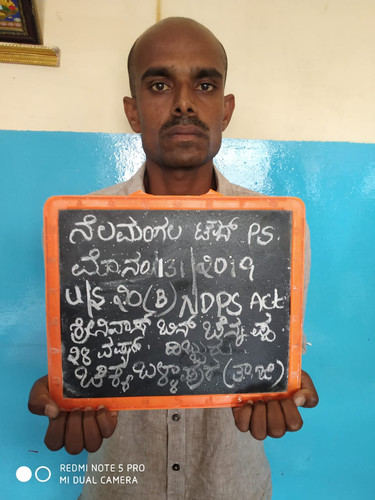 ನೆಲಮಂಗಲ ಟೌನ್ PS.
ಮೊ.ನಂ:131/2019
U/S 20(B) NDPS Act
ಶ್ರೀನಿವಾಸ್ ಬಿನ್ ಚಿನ್ನಪ್ಪ.
ವರ್ಷ.
ಚಿಕ್ಕಬಳ್ಳಾಪುರ (ತಾ||ಜಿ)
REDMI NOTE 5 PRO
MI DUAL CAMERA